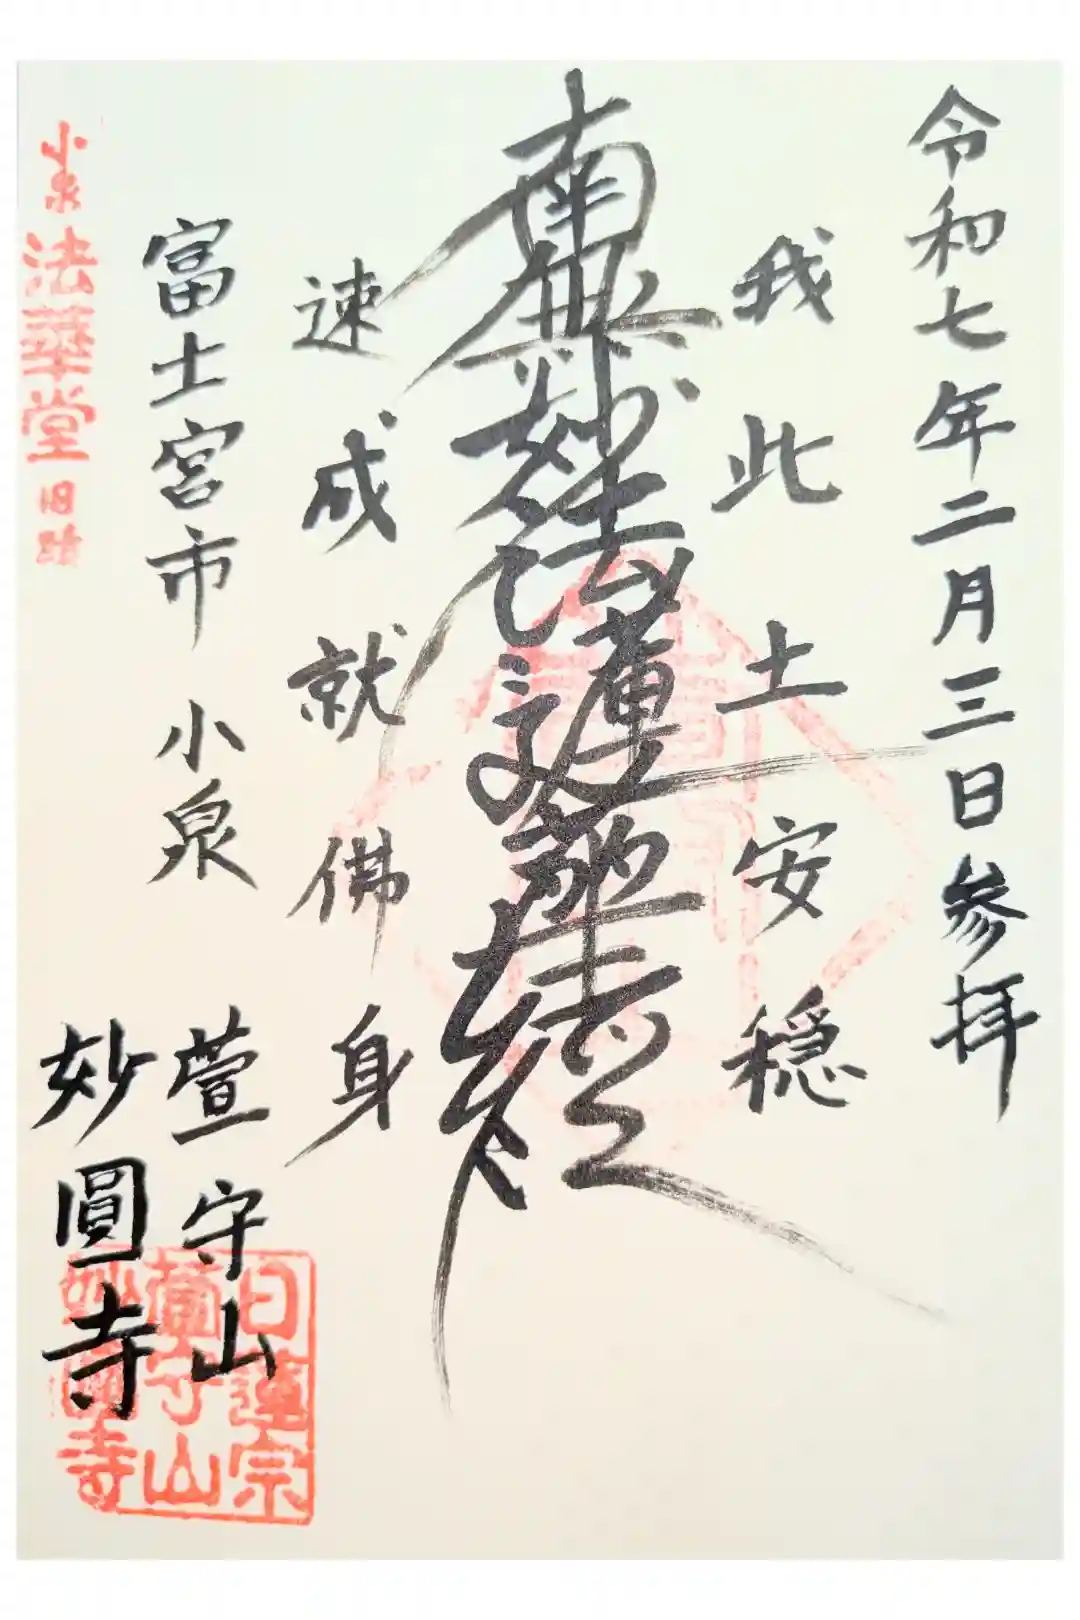 令和七年二月三日参拝
我此土安穏
南無妙法蓮華経
速成就佛身
富士宮市 小泉
萱守山
妙圓寺
小泉法華堂旧蹟
日蓮宗
萱守山
妙圓寺